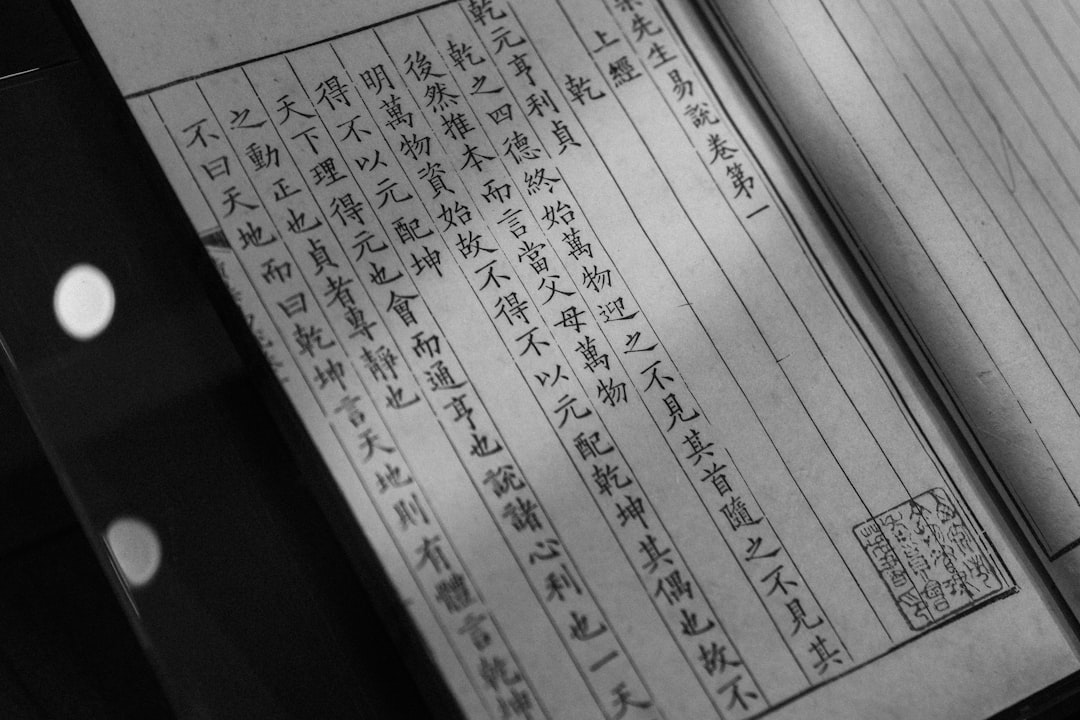 渠先生易說卷第一
上經
乾
乾元亨利貞
乾之四德終始萬物迎之不見其首隨之不見其
後然推本而言當父母萬物
明萬物資始故不得不以元配乾坤其偶也故不
得不以元配坤
天下理得元也會而通亨也說諸心利也一天
之動正也貞者專靜也
不曰天地而曰乾坤言天地則有體言乾坤